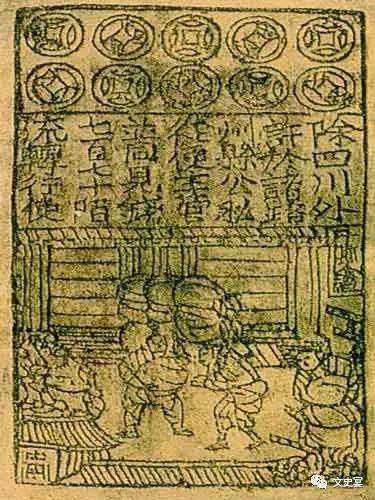 除四川外
許於諸路
州縣公私
從便主管
並同見錢
七百七十陌
流轉行使
文史宴